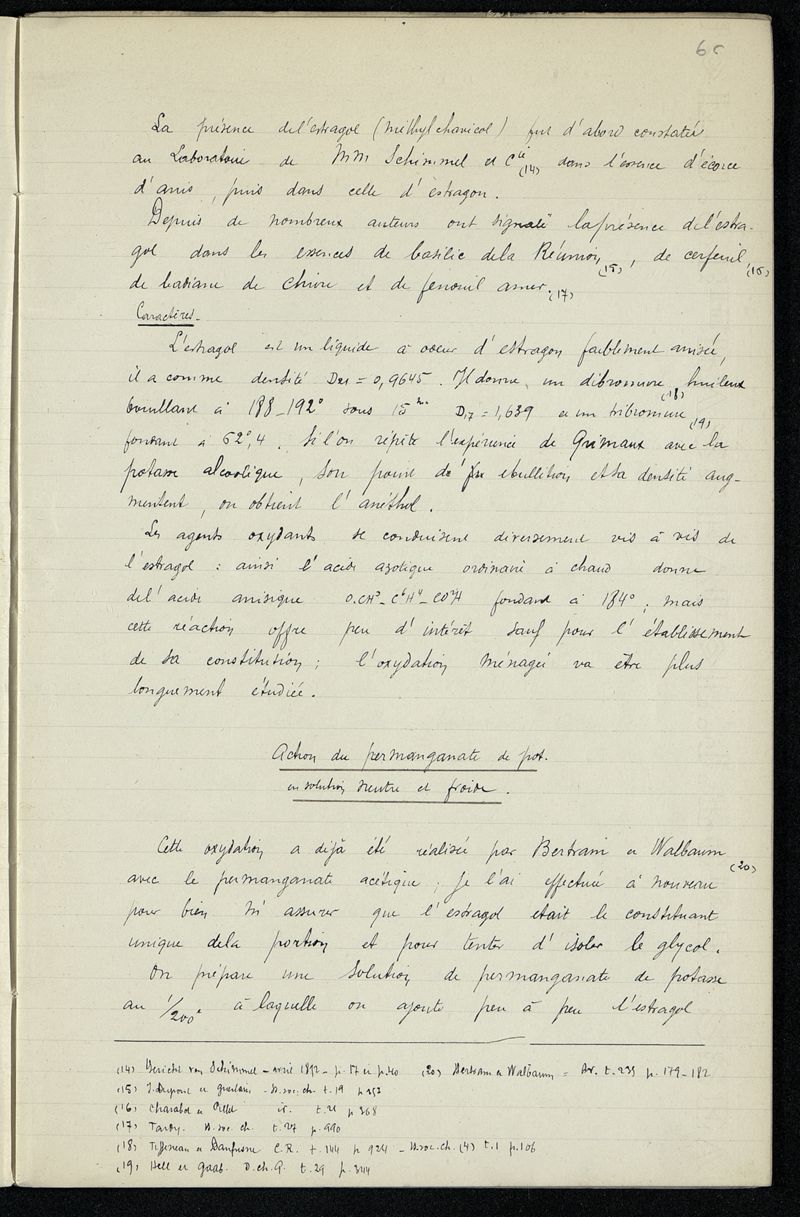 La présence de l'estragol (méthylchavicol) fut d'abord constatée
au Laboratoire de MM Schimmel et Cie (14) dans l'essence d'écorce
d'anis, puis dans celle d'estragon.
Depuis de nombreux auteurs ont signalé la présence de l'estra-
gol dans les essences de basilic de la Réunion (15), de cerfeuil, (16)
de badiane de Chine et de fenouil amer. (17)
Caractères.
L'estragol est un liquide à odeur d'estragon faiblement anisée,
il a comme densité D21 = 0,9645. Il donne un dibromure (18) huileux
bouillant à 188-192° sous 15mm D17 = 1,639 et un tribromure (19)
fondant à 62°,4. Si l'on répète l'expérience de Grimaux avec la
potasse alcoolique, son point d'ébullition et sa densité aug-
mentent, on obtient l'anéthol.
Les agents oxydants se conduisent diversement vis à vis de
l'estragol : ainsi l'acide azotique ordinaire à chaud donne
de l'acide anisique O.CH³-C⁶H⁴-CO²H fondant à 184° ; mais
cette réaction offre peu d'intérêt sauf pour l'établissement
de sa constitution ; l'oxydation ménagée va être plus
longuement étudiée.
Action du permanganate de pot.
en solution neutre et froide.
Cette oxydation a déjà été réalisée par Bertram et Walbaum (20)
avec le permanganate acétique ; je l'ai effectuée à nouveau
pour bien m'assurer que l'estragol était le constituant
unique de la portion et pour tenter d'isoler le glycol.
On prépare une solution de permanganate de potasse
au 1/200e à laquelle on ajoute peu à peu l'estragol
(14) Bericht von Schimmel - avril 1892 - p. 17 et p. 40 (20) Bertram et Walbaum = Ar. t. 235 p. 179-182
(15) J. Dupont et Guerlain - B. soc. ch. t. 19 p.
(16) Charabot et Pillet t. 21 p. 368
(17) Tardy. B. soc. ch. t. 27 p. 990
(18) Tiffeneau et Daufresne C.R. t. 144 p. 924 - B. soc. ch. (4) t. 1 p. 106
(19) Hell et Gaab. D. ch. G. t. 29 p. 344